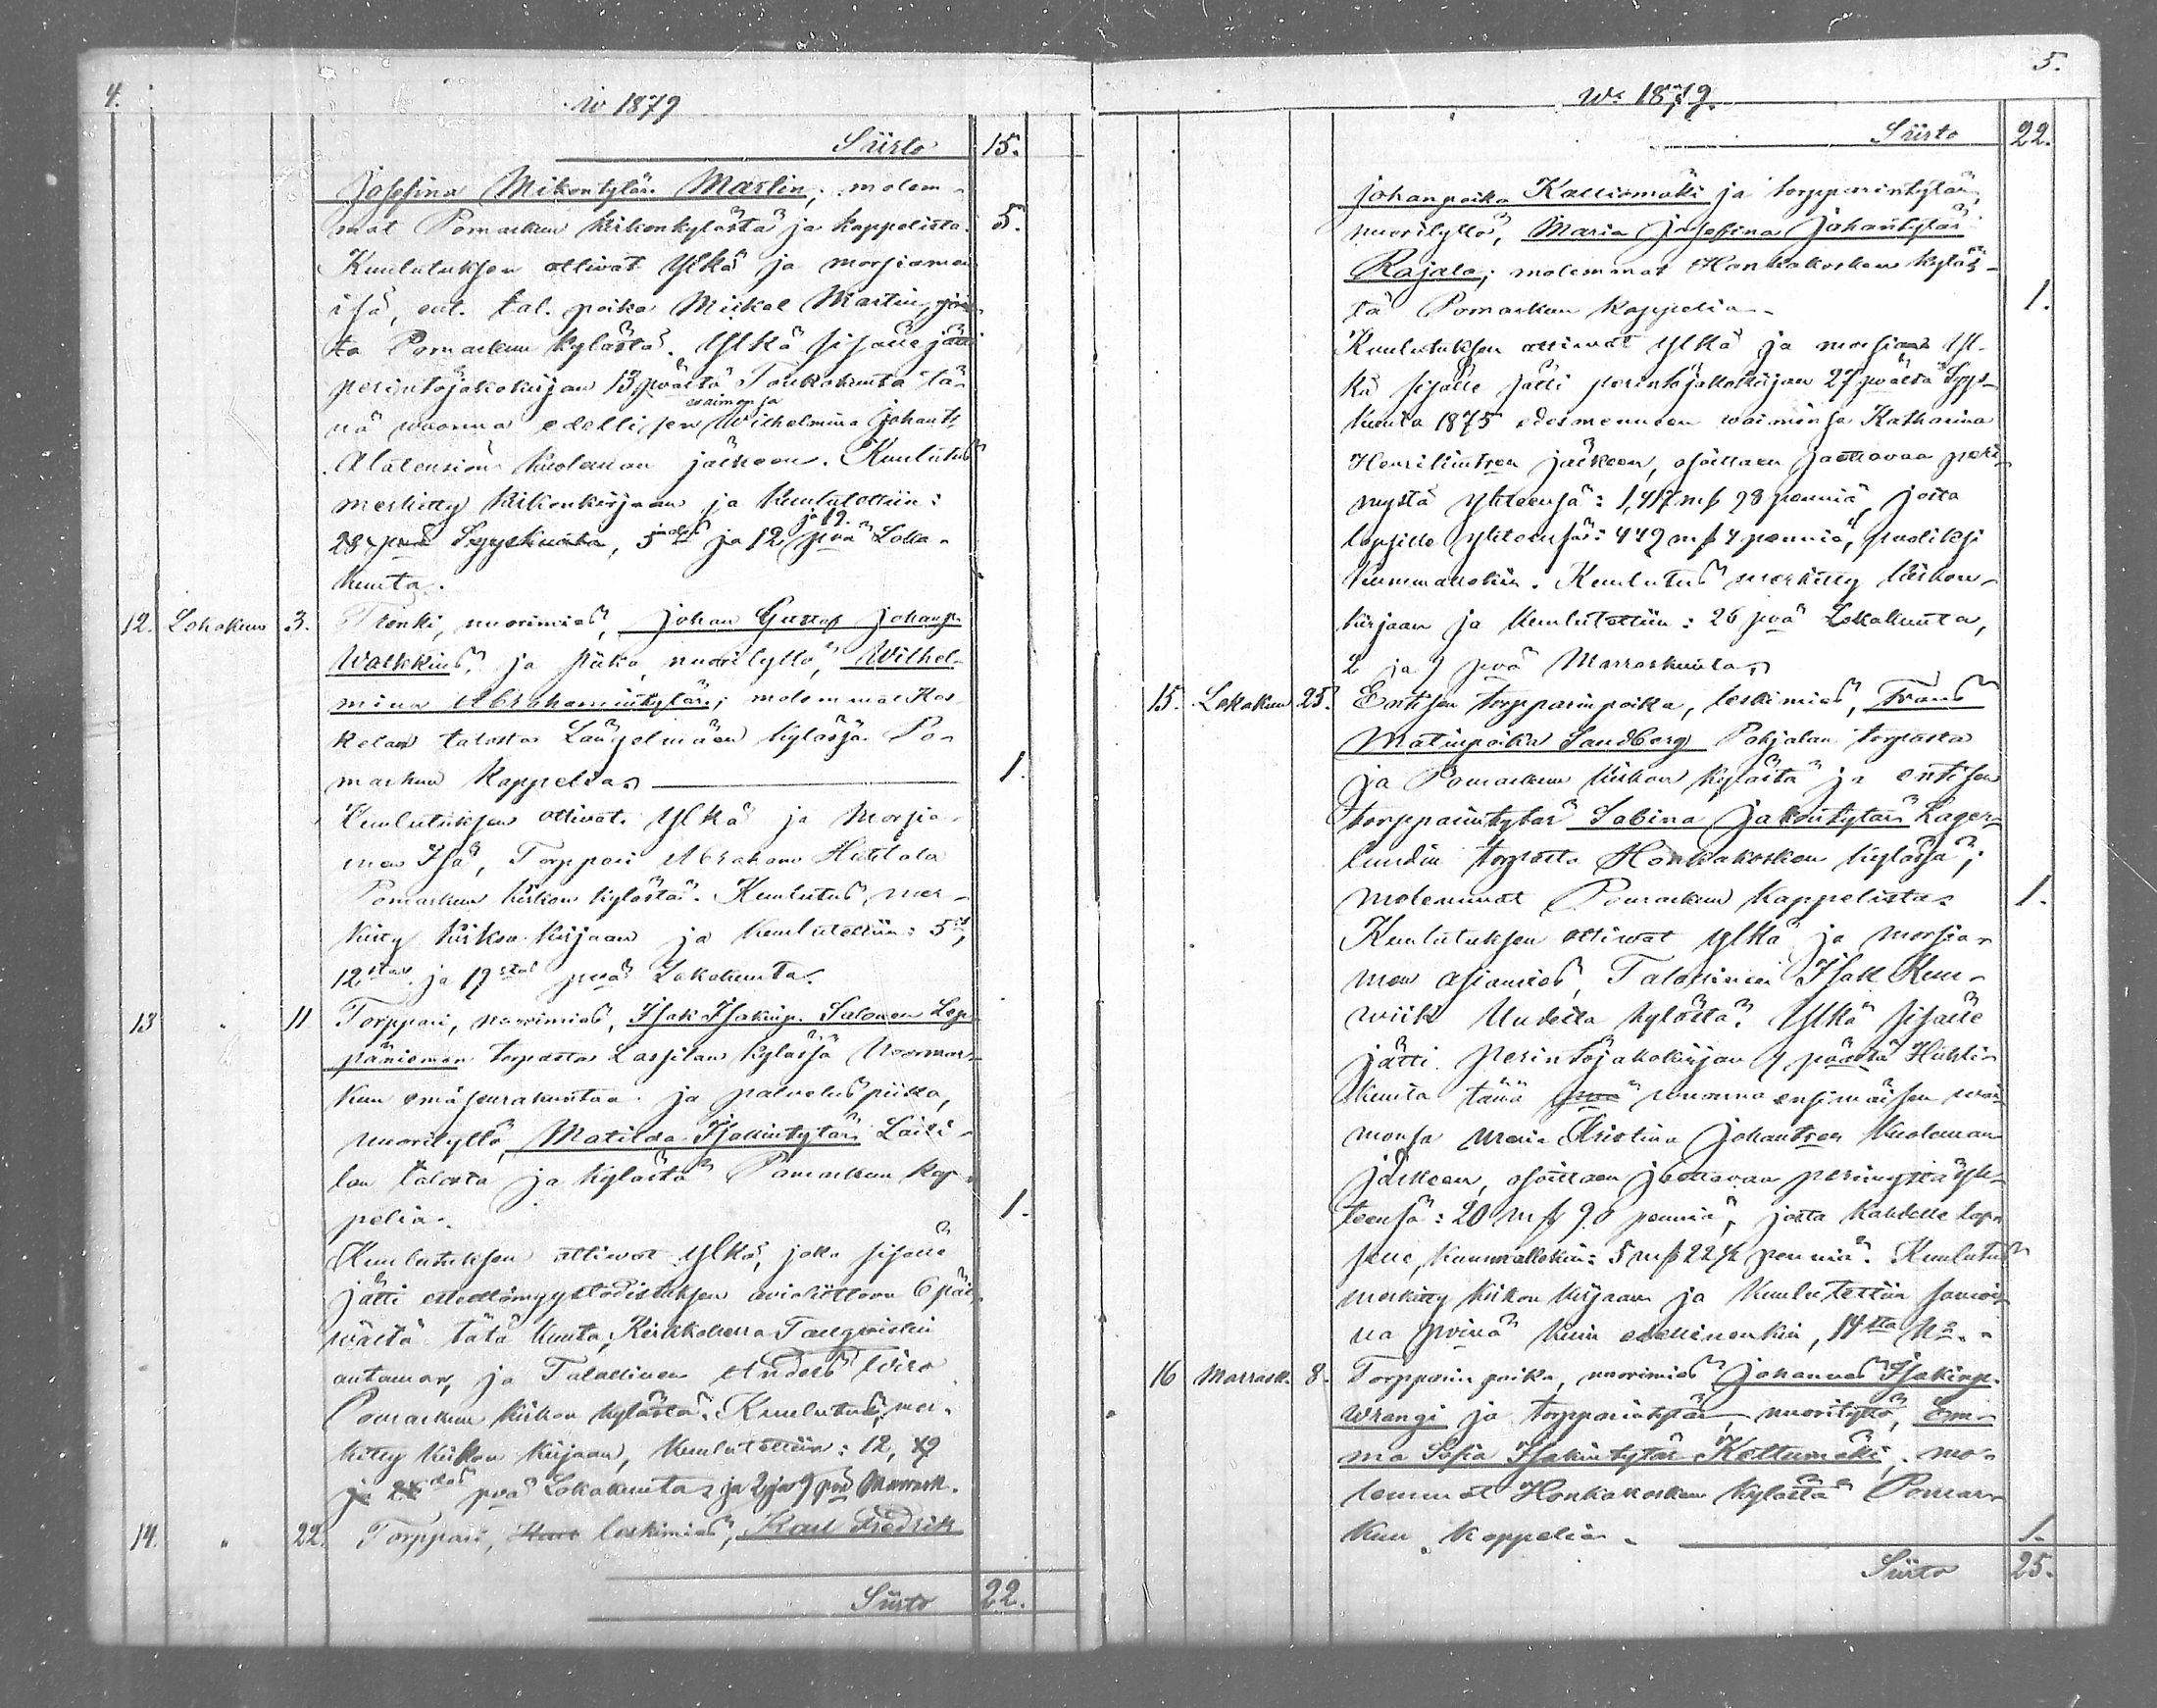 4.
w 1879
Siirto 15.
Josefina Mikontytär Martin; molem-
mat Pomarkun kirkonkylästä ja kappelista. 5.
Kuulutuksen ottivat Ylkä ja morsiamen
isä, ent. tal. poika Mickel Martin,
ta Pomarkun kylästä. Ylkä sisälle jätti
perintöjakokirjan 13 pvältä Toukokuuta tä-
waimonsa
nä wuonna edellisen Wilhelmina Johant:
Alatensiön kuoleman jälkeen. Kuulutus
merkitty kirkonkirjaan ja kuulutettiin:
ja 19.
28 pvä Syyskuuta, 5 ja 12 pvä Loka-
kuuta.
12. Lokakuu 3. Trenki, nuorimies, Johan Gustaf Johanp.
Walkkius, ja piika, nuorityttö, Wilhel-
mina Abrahamintytär; molemmat Kos-
kelan talosta Längelmäen kylässä Po-
markun Kappelia. 1.
Kuulutuksen ottivat Ylkä ja Morsia-
men Isä, Torppari Abraham Huhtala
Pomarkun kirkon kylästä. Kuulutus, mer-
kitty kirkon kirjaan ja kuulutettiin: 5,
12sta ja 19sta pvä Lokakuuta.
13 " 11 Torppari, nuorimies, Isak Isakinp. Salonen Lep-
päniemen torpasta Lassilan kylässä Noormar-
kun emäseurakuntaa ja palveluspiika,
nuorityttö, Matilda Isakintytär Laisi-
lan talosta ja kylästä Pomarkun kap-
pelia. 1.
Kuulutuksen ottivat Ylkä, joka sisälle
jätti esteettömyystodistuksen aviokättoon 6 päi-
wältä tätä kuuta, Kirkkoherra Tallqvistin
antaman, ja Talollinen Anders Wiro
Pomarkun kirkon kylästä. Kuulutus mer-
kitty kirkon kirjaan, kuulutettiin: 12, 19
ja 26 pvä Lokakuuta ja 2 ja 9 pvä Marrask.
14. " 22. Torppari, leskimies, Karl Fredrik
Siirto 22.
5.
w. 1879.
Siirto 22.
Johanpoika Kalliomäki ja torpparintytär,
nuorityttö, Maria Josefina Johantytär
Rajala; molemmat Honkakosken kyläs-
tä Pomarkun Kappelia. 1.
Kuulutuksen ottivat Ylkä ja morsian Yl-
kä sisälle jätti perintöjakokirjan 27 pvältä Syys-
kuuta 1875 edesmenneen waimonsa Katharina
Henrikintren jälkeen, osoittaen jaettavaa peri-
mystä yhteensä: 1,417 mk 98 penniä, josta
lapsille yhteensä: 442 mk 4 penniä, puoliksi
kummallekin. Kuulutus merkitty kirkon-
kirjaan ja kuulutettiin: 26 pvä Lokakuuta,
2 ja 9 pvä Marraskuuta.
15. Lokakuu 25. Entisen torpparinpoika, leskimies, Frans
Matinpoika Sandberg Pohjalan torpasta
ja Pomarkun kirkon kylästä ja entisen
torpparintytär Sabina Jakontytär Lager-
lundin torpasta Honkakosken kylässä;
molemmat Pomarkun Kappelista. 1.
Kuulutuksen ottiwat Ylkä ja morsia-
men asiamies, Talollinen Isak Kun-
wiik Uudelta kylästä. Ylkä sisälle
jätti perintöjakokirjan 9 päältä Huhti-
kuuta tänä pvä wuonna ensimäisen wai-
monsa Maria Kristina Johantren kuoleman
jälkeen, osoittaen jaettavaa perimystä yh-
teensä: 20 mk 90 penniä, josta kahdelle lap-
selle, kummallekin: 5 mk 22 1/2 penniä. Kuulutus
merkitty kirkon kirjaan ja kuulutettiin samoi-
na pvinä kuin edellinenkin, 14sta No.
16 Marrask. 8. Torpparin poika, nuorimies Johannes Isakinp.
Wrangi ja torpparintytär, nuorityttö, Em-
ma Sofia Isakintytär Kettumäki, mo-
lemmat Honkakosken kylästä Pomar-
kun Kappelia. 1.
Siirto 25.